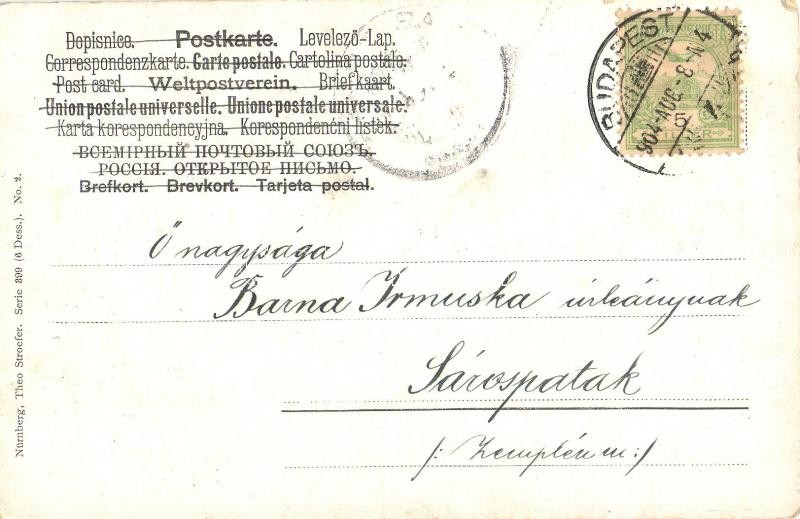 Dopisnice. Postkarte. Levelező-Lap.
Correspondenzkarte. Carte postale. Cartolina postale.
Post card. Weltpostverein. Briefkaart.
Union postale universelle. Unione postale universale.
Karta korespondencyjna. Korespondenční lístek.
ВСЕМІРНЫЙ ПОЧТОВЫЙ СОЮЗЪ.
РОССІЯ. ОТКРЫТОЕ ПИСЬМО.
Brefkort. Brevkort. Tarjeta postal.
BUDAPEST
904 AUG 8 N 4
5
Ő nagysága
Barna Irmuska úrleánynak
Sárospatak
/: Zemplén m :/
Nürnberg, Theo Stroefer. Serie 899 (6 Dess.). No. 2.